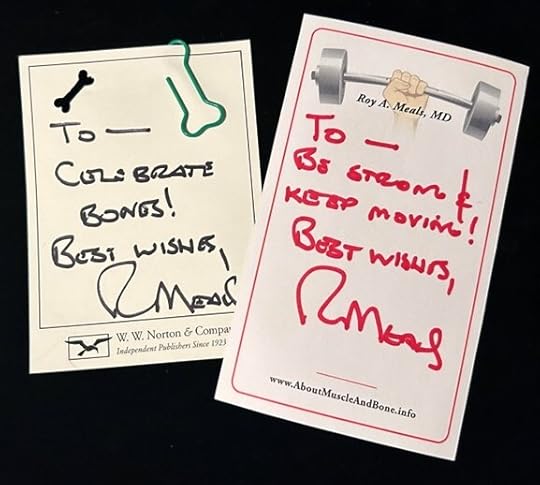 To —
Celebrate
Bones!
Best wishes,
R Meals
W. W. Norton & Compa
Independent Publishers Since 1923
Roy A. Meals, MD
To —
Be strong &
keep moving!
Best wishes,
R Meals
www.AboutMuscleAndBone.info